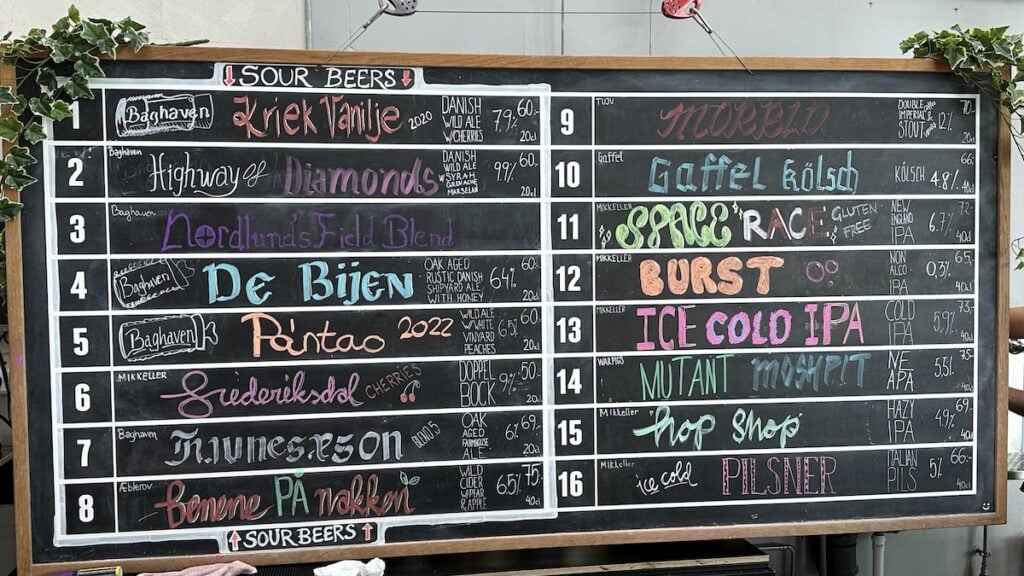 ↓ SOUR BEERS ↓
1 Baghaven Kriek Vanilje 2020 DANISH WILD ALE W/CHERRIES 7.7% 60.- 20cl
2 Baghaven Highway of Diamonds DANISH WILD ALE W/SYRAH 9.9% 60.- 20cl
3 Baghaven Nordlund's Field Blend
4 Baghaven De Bijen OAK AGED RUSTIC DANISH SHIPYARD ALE WITH HONEY 6.4% 60.- 20cl
5 Baghaven Paintao 2022 WILD ALE W/WHITE VINYARD PEACHES 6.5% 60.- 20cl
6 MIKKELLER frederiksdal CHERRIES DOPPEL BOCK 9% 50.- 20cl
7 Baghaven BLEND 5 OAK AGED FARMHOUSE ALE 6% 69.- 20cl
8 Æblerov Benene PÅ nakken WILD CIDER W/PEAR & APPLE 6.5% 75.- 40cl
↑ SOUR BEERS ↑
9 MORBLO DOUBLE IMPERIAL STOUT 12% 70.- 20cl
10 Gaffel Gaffel Kölsch KÖLSCH 4.8% 66.- 40cl
11 MIKKELLER SPACE RACE GLUTEN-FREE NEW ENGLAND IPA 6.7% 72.- 40cl
12 MIKKELLER BURST NON ALCO IPA 0,3% 65.- 40cl
13 MIKKELLER ICE COLD IPA COLD IPA 5.9% 75.- 40cl
14 WARPIGS MUTANT MOSHPIT NE APA 5.5% 75.- 40cl
15 Mikkeller hop Shop HAZY IPA 4.9% 69.- 40cl
16 Mikkeller ice cold PILSNER ITALIAN PILS 5% 66.- 40cl